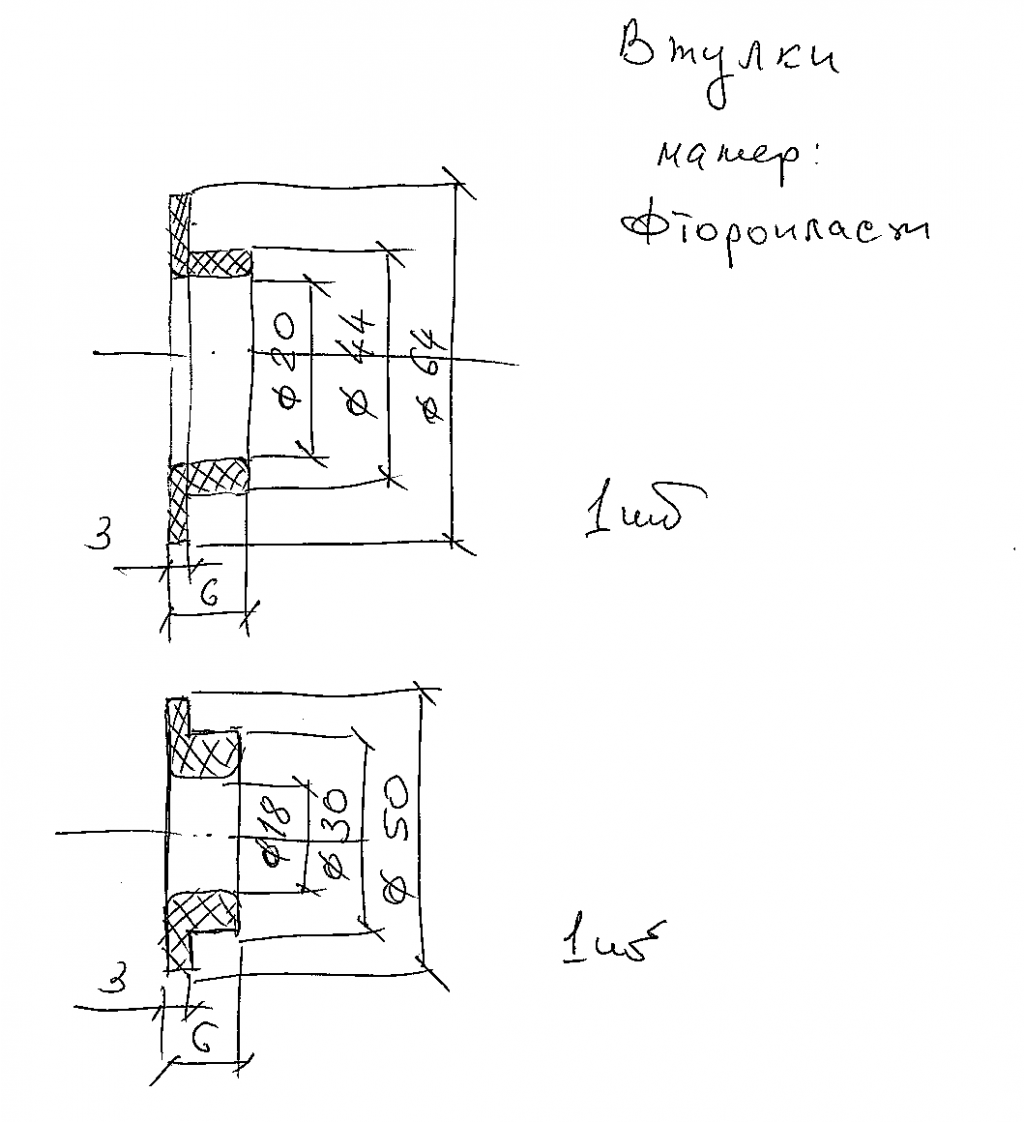 Втулки
матер:
Фторопласт
⌀20
⌀44
⌀64
1 шт
3
6
⌀18
⌀30
⌀50
1 шт
3
6